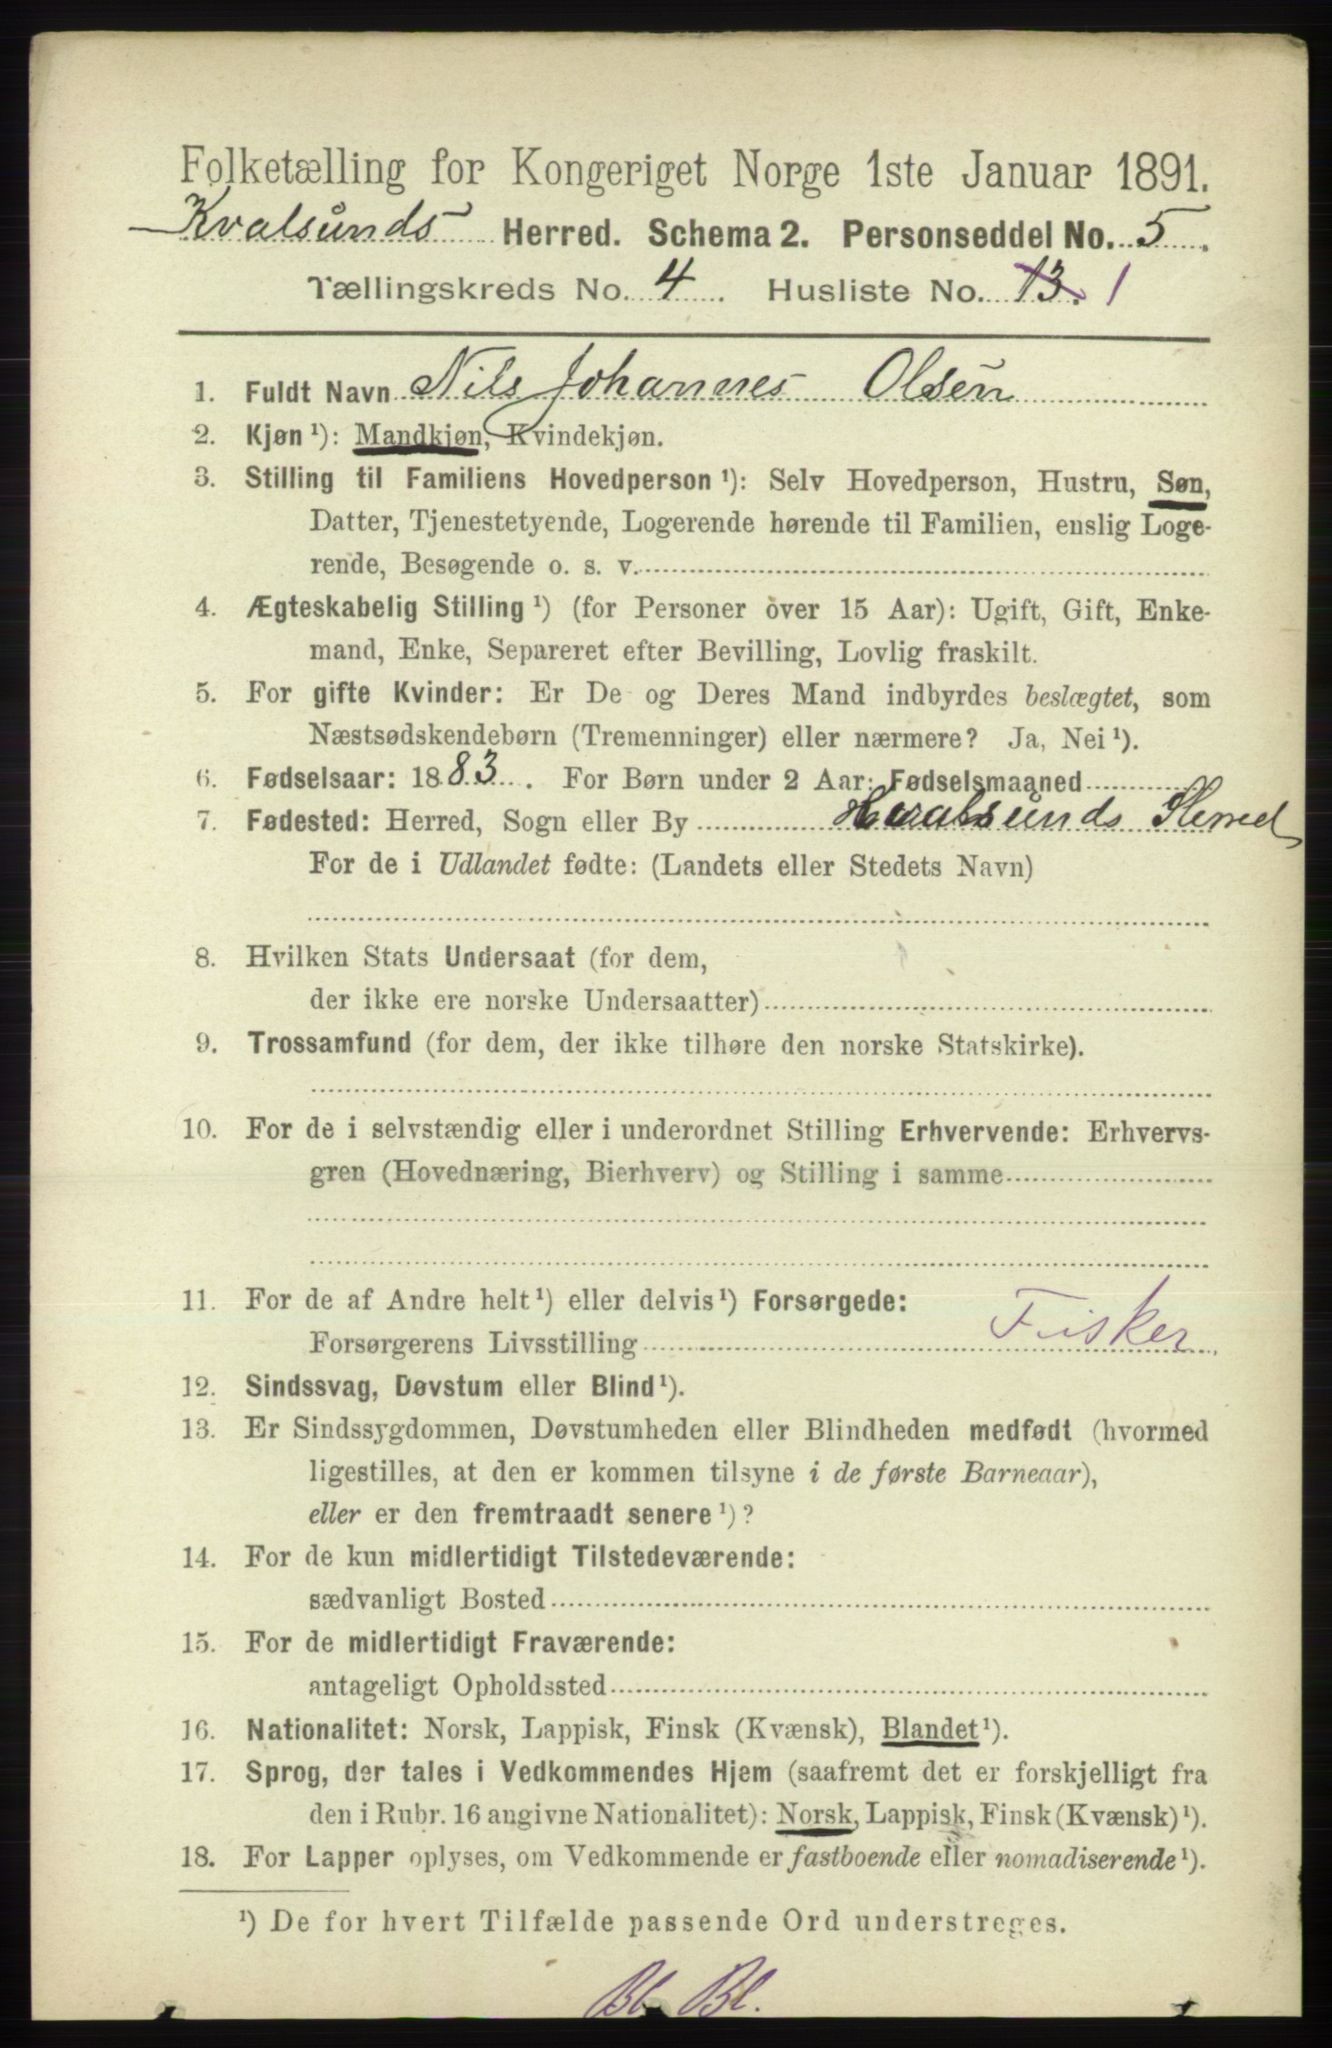 Folketælling for Kongeriget Norge 1ste Januar 1891.
Kvalsunds Herred. Schema 2. Personseddel No. 5.
Tællingskreds No. 4. Husliste No. 13. 1
1. Fuldt Navn Nils Johannes Olsen
2. Kjøn ¹): Mandkjøn, Kvindekjøn.
3. Stilling til Familiens Hovedperson ¹): Selv Hovedperson, Hustru, Søn,
Datter, Tjenestetyende, Logerende hørende til Familien, enslig Loge-
rende, Besøgende o. s. v.
4. Ægteskabelig Stilling ¹) (for Personer over 15 Aar): Ugift, Gift, Enke-
mand, Enke, Separeret efter Bevilling, Lovlig fraskilt.
5. For gifte Kvinder: Er De og Deres Mand indbyrdes beslægtet, som
Næstsødskendebørn (Tremenninger) eller nærmere? Ja, Nei ¹).
6. Fødselsaar: 1883. For Børn under 2 Aar: Fødselsmaaned
7. Fødested: Herred, Sogn eller By Kvalsunds Herred
For de i Udlandet fødte: (Landets eller Stedets Navn)
8. Hvilken Stats Undersaat (for dem,
der ikke ere norske Undersaatter)
9. Trossamfund (for dem, der ikke tilhøre den norske Statskirke).
10. For de i selvstændig eller i underordnet Stilling Erhvervende: Erhvervs-
gren (Hovednæring, Bierhverv) og Stilling i samme
11. For de af Andre helt ¹) eller delvis ¹) Forsørgede:
Forsørgerens Livsstilling Fisker
12. Sindssvag, Døvstum eller Blind ¹).
13. Er Sindssygdommen, Døvstumheden eller Blindheden medfødt (hvormed
ligestilles, at den er kommen tilsyne i de første Barneaar),
eller er den fremtraadt senere ¹)?
14. For de kun midlertidigt Tilstedeværende:
sædvanligt Bosted
15. For de midlertidigt Fraværende:
antageligt Opholdssted
16. Nationalitet: Norsk, Lappisk, Finsk (Kvænsk), Blandet ¹).
17. Sprog, der tales i Vedkommendes Hjem (saafremt det er forskjelligt fra
den i Rubr. 16 angivne Nationalitet): Norsk, Lappisk, Finsk (Kvænsk) ¹).
18. For Lapper oplyses, om Vedkommende er fastboende eller nomadiserende ¹).
¹) De for hvert Tilfælde passende Ord understreges.
Bl. Bl.